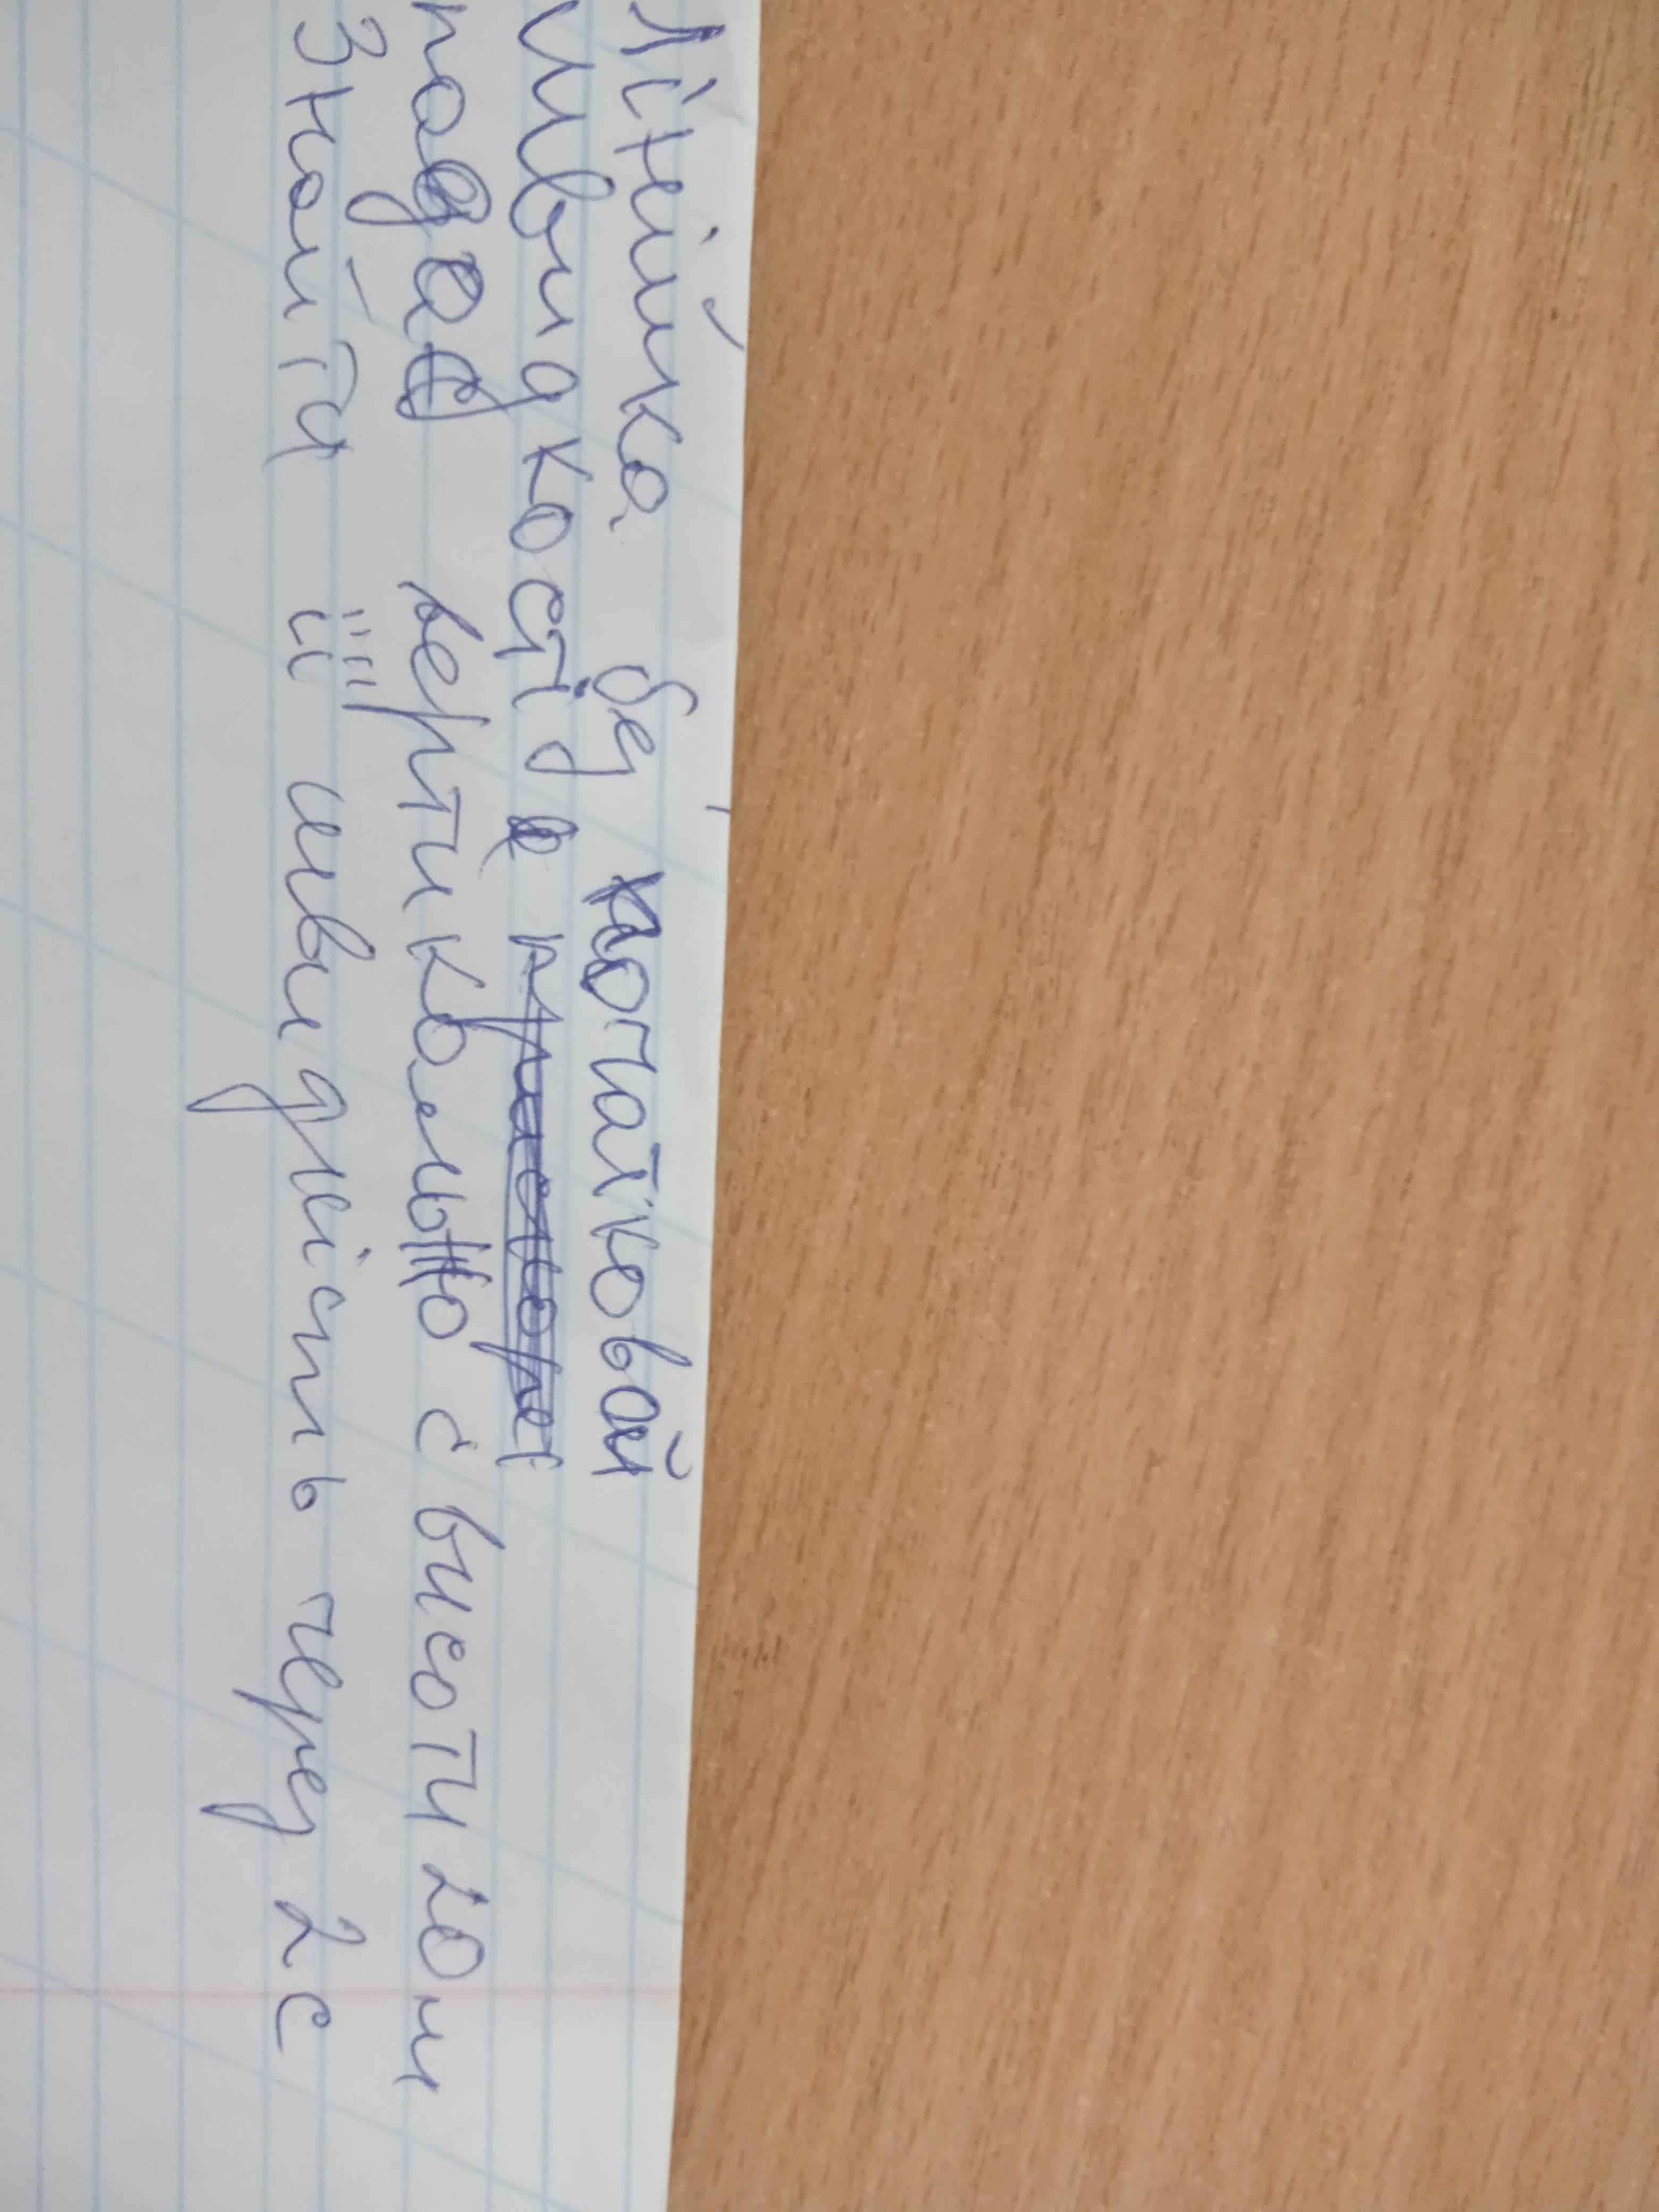 Лінійка без початковой
швидкості
падає вертикально с висоти 20м
Знайти її швидність через 2с